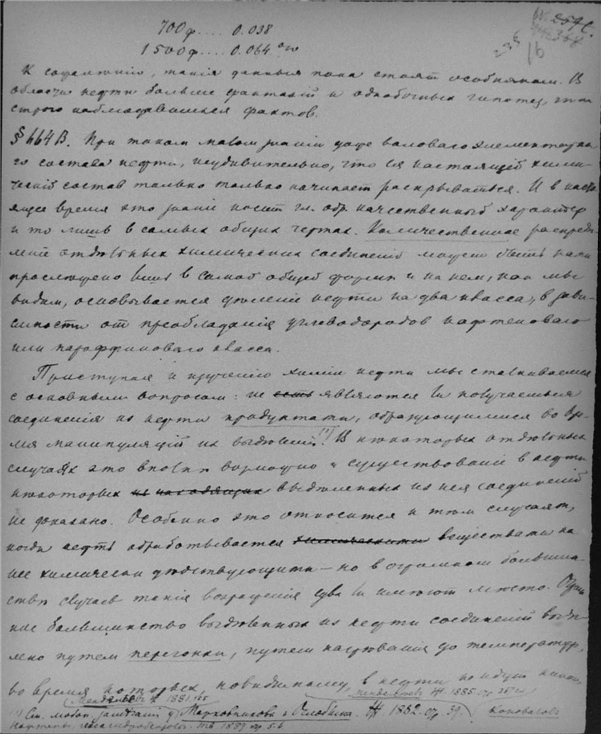 700ф.... 0.038
1500ф.... 0.064
К сожалѣнію, такія данныя пока стоятъ особнякомъ. В
области нефти больше фантазій и однобокихъ гипотезъ, чѣмъ
строго наблюдавшихся фактов.
§ 664В. При таком малом знаніи даже валового элементарна-
го состава нефти, неудивительно, что ея настоящій хими-
ческій состав только только начинает раскрываться. И в насто-
ящее время это знаніе носит гл. обр. качественный характер
и то лишь в самых общих чертах. Количественное распредѣ-
леніе отдѣльных химических соединеній может быть нами
прослежено лишь в самой общей форме и на нем, как мы
видим, основывается дѣленіе нефти на два класса, в зави-
симости от преобладанія углеводородов нафтенового
или параффинового класса.
Приступая к изученію химіи нефти мы сталкиваемся
с основным вопросом: не есть являются ли получаемые
соединенія из нефти продуктами, образующимися во вре-
мя манипуляцій их выдѣленія. В некоторых отдѣльных
случаях это вполнѣ возможно и существованіе в нефти
некоторых из находящих выдѣленных из нея соединеній
не доказано. Особенно это относится к тѣм случаям,
когда нефть обрабатывается химическими веществами на
нее химически дѣйствующими — но в огромном большин-
ствѣ случаев такія возраженія едва ли имѣют мѣсто. Огром-
ное большинство выдѣленных из нефти соединеній выдѣ-
лено путем перегонки, путем нагрѣванія до температур,
во время которых, повидимому, в нефти не идут
1881
1885
Марковникова и Оглобина. 1882. Коновалов